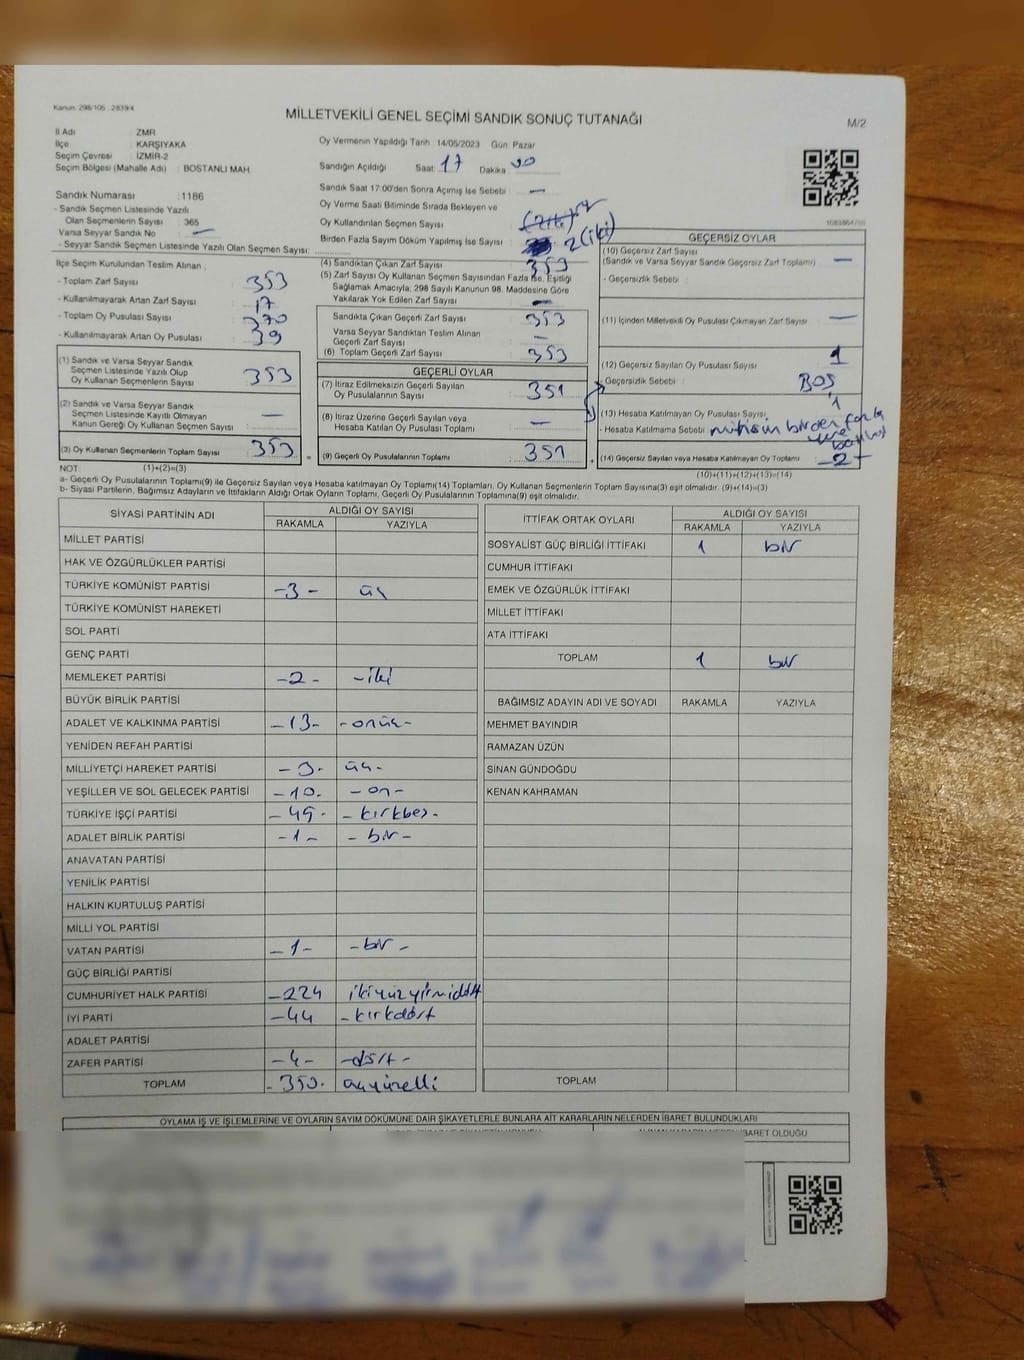 Kanun: 298/105 , 2839/4
MİLLETVEKİLİ GENEL SEÇİMİ SANDIK SONUÇ TUTANAĞI
M/2
İl Adı : ZMR
İlçe : KARŞIYAKA
Seçim Çevresi : İZMİR-2
Seçim Bölgesi (Mahalle Adı) : BOSTANLI MAH.
Oy Vermenin Yapıldığı Tarih 14/05/2023 Gün Pazar
Sandığın Açıldığı Saat: 17 Dakika 00
Sandık Saat 17:00'den Sonra Açımış İse Sebebi : —
Oy Verme Saati Bitiminde Sırada Bekleyen ve
Oy Kullandırılan Seçmen Sayısı :
Birden Fazla Sayım Döküm Yapılmış İse Sayısı : 2 (iki)
Sandık Numarası : 1186
- Sandık Seçmen Listesinde Yazılı
Olan Seçmenlerin Sayısı : 365
Varsa Seyyar Sandık No : —
- Seyyar Sandık Seçmen Listesinde Yazılı Olan Seçmen Sayısı:
İlçe Seçim Kurulundan Teslim Alınan :
- Toplam Zarf Sayısı : 353
- Kullanılmayarak Artan Zarf Sayısı : 17
- Toplam Oy Pusulası Sayısı : 370
- Kullanılmayarak Artan Oy Pusulası : 39
(1) Sandık ve Varsa Seyyar Sandık
Seçmen Listesinde Yazılı Olup
Oy Kullanan Seçmenlerin Sayısı : 353
(2) Sandık ve Varsa Seyyar Sandık
Seçmen Listesinde Kayıtlı Olmayan
Kanun Gereği Oy Kullanan Seçmen Sayısı : —
(3) Oy Kullanan Seçmenlerin Toplam Sayısı : 353
(4) Sandıktan Çıkan Zarf Sayısı : 353
(5) Zarf Sayısı Oy Kullanan Seçmen Sayısından Fazla İse, Eşitliği
Sağlamak Amacıyla; 298 Sayılı Kanunun 98. Maddesine Göre
Yakılarak Yok Edilen Zarf Sayısı : —
Sandıkta Çıkan Geçerli Zarf Sayısı : 353
Varsa Seyyar Sandıktan Teslim Alınan
Geçerli Zarf Sayısı : —
(6) Toplam Geçerli Zarf Sayısı : 353
GEÇERLİ OYLAR
(7) İtiraz Edilmeksizin Geçerli Sayılan
Oy Pusulalarının Sayısı : 351
(8) İtiraz Üzerine Geçerli Sayılan veya
Hesaba Katılan Oy Pusulası Toplamı : —
(9) Geçerli Oy Pusulalarının Toplamı : 351
GEÇERSİZ OYLAR
(10) Geçersiz Zarf Sayısı
(Sandık ve Varsa Seyyar Sandık Geçersiz Zarf Toplamı) : —
- Geçersizlik Sebebi :
(11) İçinden Milletvekili Oy Pusulası Çıkmayan Zarf Sayısı : —
(12) Geçersiz Sayılan Oy Pusulası Sayısı : 1
- Geçersizlik Sebebi : BOŞ
(13) Hesaba Katılmayan Oy Pusulası Sayısı : 1
- Hesaba Katılmama Sebebi birden fazla
(14) Geçersiz Sayılan veya Hesaba Katılmayan Oy Toplamı : -2-
NOT: (1)+(2)=(3)
(10)+(11)+(12)+(13)=(14)
a- Geçerli Oy Pusulalarının Toplamı(9) ile Geçersiz Sayılan veya Hesaba Katılmayan Oy Toplamı(14) Toplamları, Oy Kullanan Seçmenlerin Toplam Sayısına(3) eşit olmalıdır. (9)+(14)=(3)
b- Siyasi Partilerin, Bağımsız Adayların ve İttifakların Aldığı Ortak Oyların Toplamı, Geçerli Oy Pusulalarının Toplamına(9) eşit olmalıdır.
SİYASİ PARTİNİN ADI ALDIĞI OY SAYISI
RAKAMLA YAZIYLA
MİLLET PARTİSİ
HAK VE ÖZGÜRLÜKLER PARTİSİ
TÜRKİYE KOMÜNİST PARTİSİ -3- üç
TÜRKİYE KOMÜNİST HAREKETİ
SOL PARTİ
GENÇ PARTİ
MEMLEKET PARTİSİ -2- -iki
BÜYÜK BİRLİK PARTİSİ
ADALET VE KALKINMA PARTİSİ -13- -onüç-
YENİDEN REFAH PARTİSİ
MİLLİYETÇİ HAREKET PARTİSİ -3- üç-
YEŞİLLER VE SOL GELECEK PARTİSİ -10- -on-
TÜRKİYE İŞÇİ PARTİSİ -45- -kırkbeş-
ADALET BİRLİK PARTİSİ -1- -bir-
ANAVATAN PARTİSİ
YENİLİK PARTİSİ
HALKIN KURTULUŞ PARTİSİ
MİLLİ YOL PARTİSİ
VATAN PARTİSİ -1- -bir-
GÜÇ BİRLİĞİ PARTİSİ
CUMHURİYET HALK PARTİSİ -224 ikiyüzyirmidört
İYİ PARTİ -44 -kırkdört
ADALET PARTİSİ
ZAFER PARTİSİ -4- -dört-
TOPLAM -350- üçyüzelli
İTTİFAK ORTAK OYLARI ALDIĞI OY SAYISI
RAKAMLA YAZIYLA
SOSYALİST GÜÇ BİRLİĞİ İTTİFAKI 1 bir
CUMHUR İTTİFAKI
EMEK VE ÖZGÜRLÜK İTTİFAKI
MİLLET İTTİFAKI
ATA İTTİFAKI
TOPLAM 1 bir
BAĞIMSIZ ADAYIN ADI VE SOYADI RAKAMLA YAZIYLA
MEHMET BAYINDIR
RAMAZAN ÜZÜN
SİNAN GÜNDOĞDU
KENAN KAHRAMAN
TOPLAM
OYLAMA İŞ VE İŞLEMLERİNE VE OYLARIN SAYIM DÖKÜMÜNE DAİR ŞİKAYETLERLE BUNLARA AİT KARARLARIN NELERDEN İBARET BULUNDUKLARI
İBARET OLDUĞU